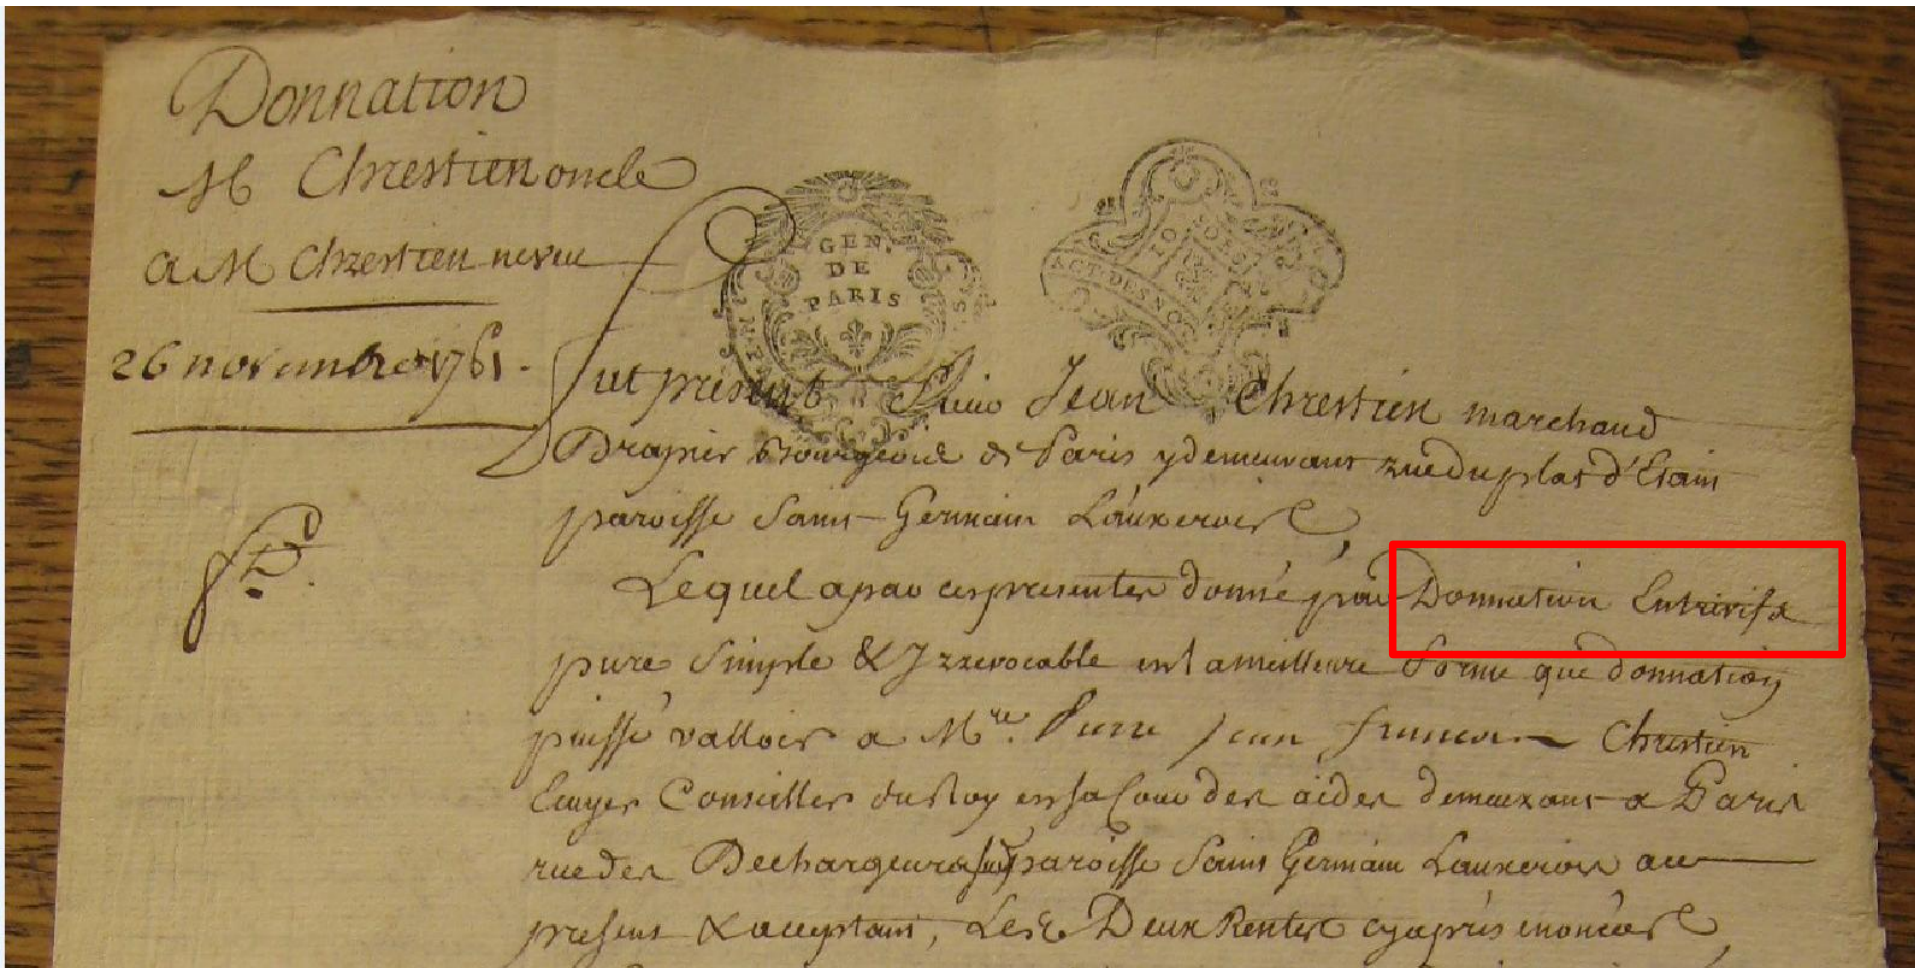 Donnation
M Chrestien oncle
a M Chrestien neveu
26 novembre 1761.
GEN.
DE
PARIS
ACT. DES NO
Fut present Sieur Jean Chrestien marchand
Drapier Bourgeois de Paris y demeurant rue du plat d'Etain
paroisse Saint Germain Lauxerois
Lequel a par ces presentes donné par Donnation Entrevifs
pure Simple & Irrevocable en la meilleure forme que donnation
puisse valloir a Mre. Pierre Jean francois Chrestien
Ecuyer Conseiller du Roy en sa Cour des aides demeurant a Paris
rue des Dechargeurs susd paroisse Saint Germain Lauxerois a ce
present & acceptant, Les Deux Rentes cy après enoncées